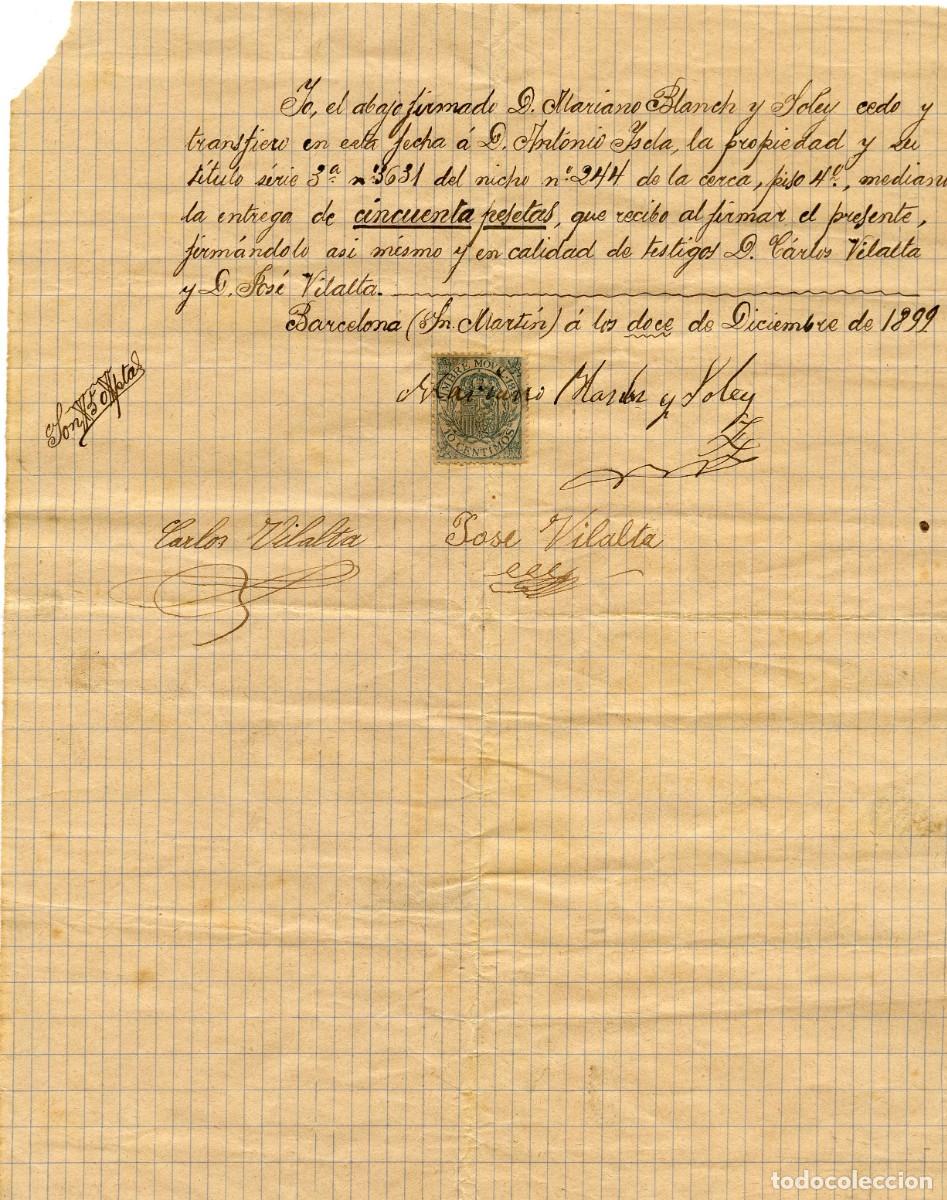 Yo, el abajo firmado D. Mariano Blanch y Soley cedo y
transfiero en esta fecha á D. António Isda, la propiedad y su
título série 3ª nº 3631 del nicho nº 244 de la cerca, piso 4º, median
la entrega de cincuenta pesetas, que recibo al firmar el presente,
firmándolo asi mismo y en calidad de testigos D. Cárlos Vilalta
y D. José Vilalta.
Barcelona (Sn. Martín) á los doce de Diciembre de 1899
Són 50 ptas
TIMBRE MOVIL 18
10 CENTIMOS
Mariano Blanch y Soley
Carlos Vilalta José Vilalta
todocoleccion